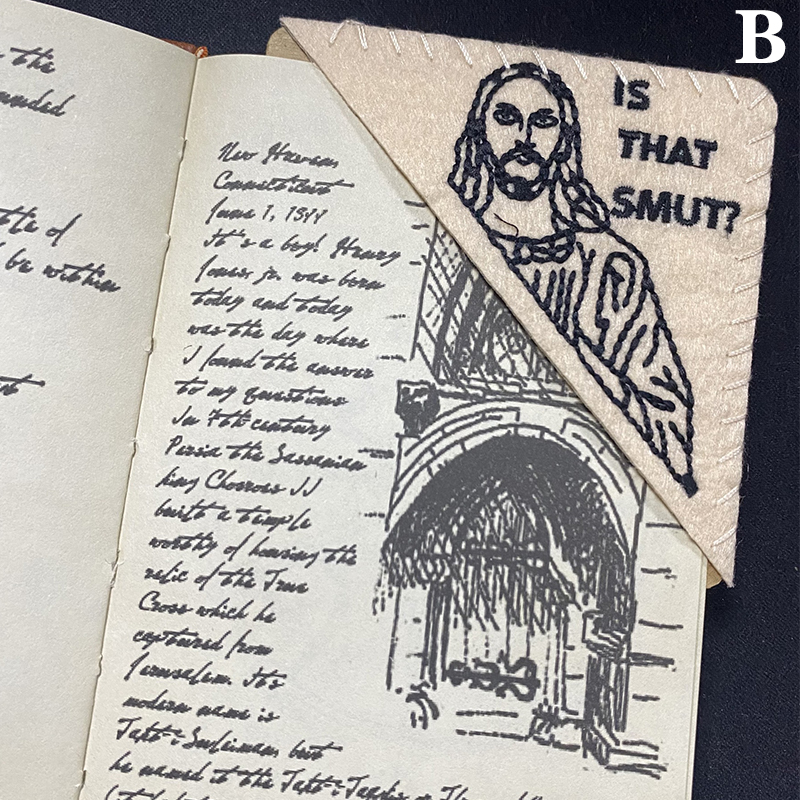 B
IS
THAT
SMUT?
the
of
be within
New Haven
Connecticut
June 1, 19
It's a boy! Henry
Jones jr. was born
today and today
was the day where
I found the answer
to my questions
In 7th century
Persia the Sassanian
king Chosroes II
built a temple
worthy of housing the
relic of the True
Cross which he
captured from
Jerusalem. It's
modern name is
Takt-i-Suleiman, but
he named it the Takt-i-Taqdis or